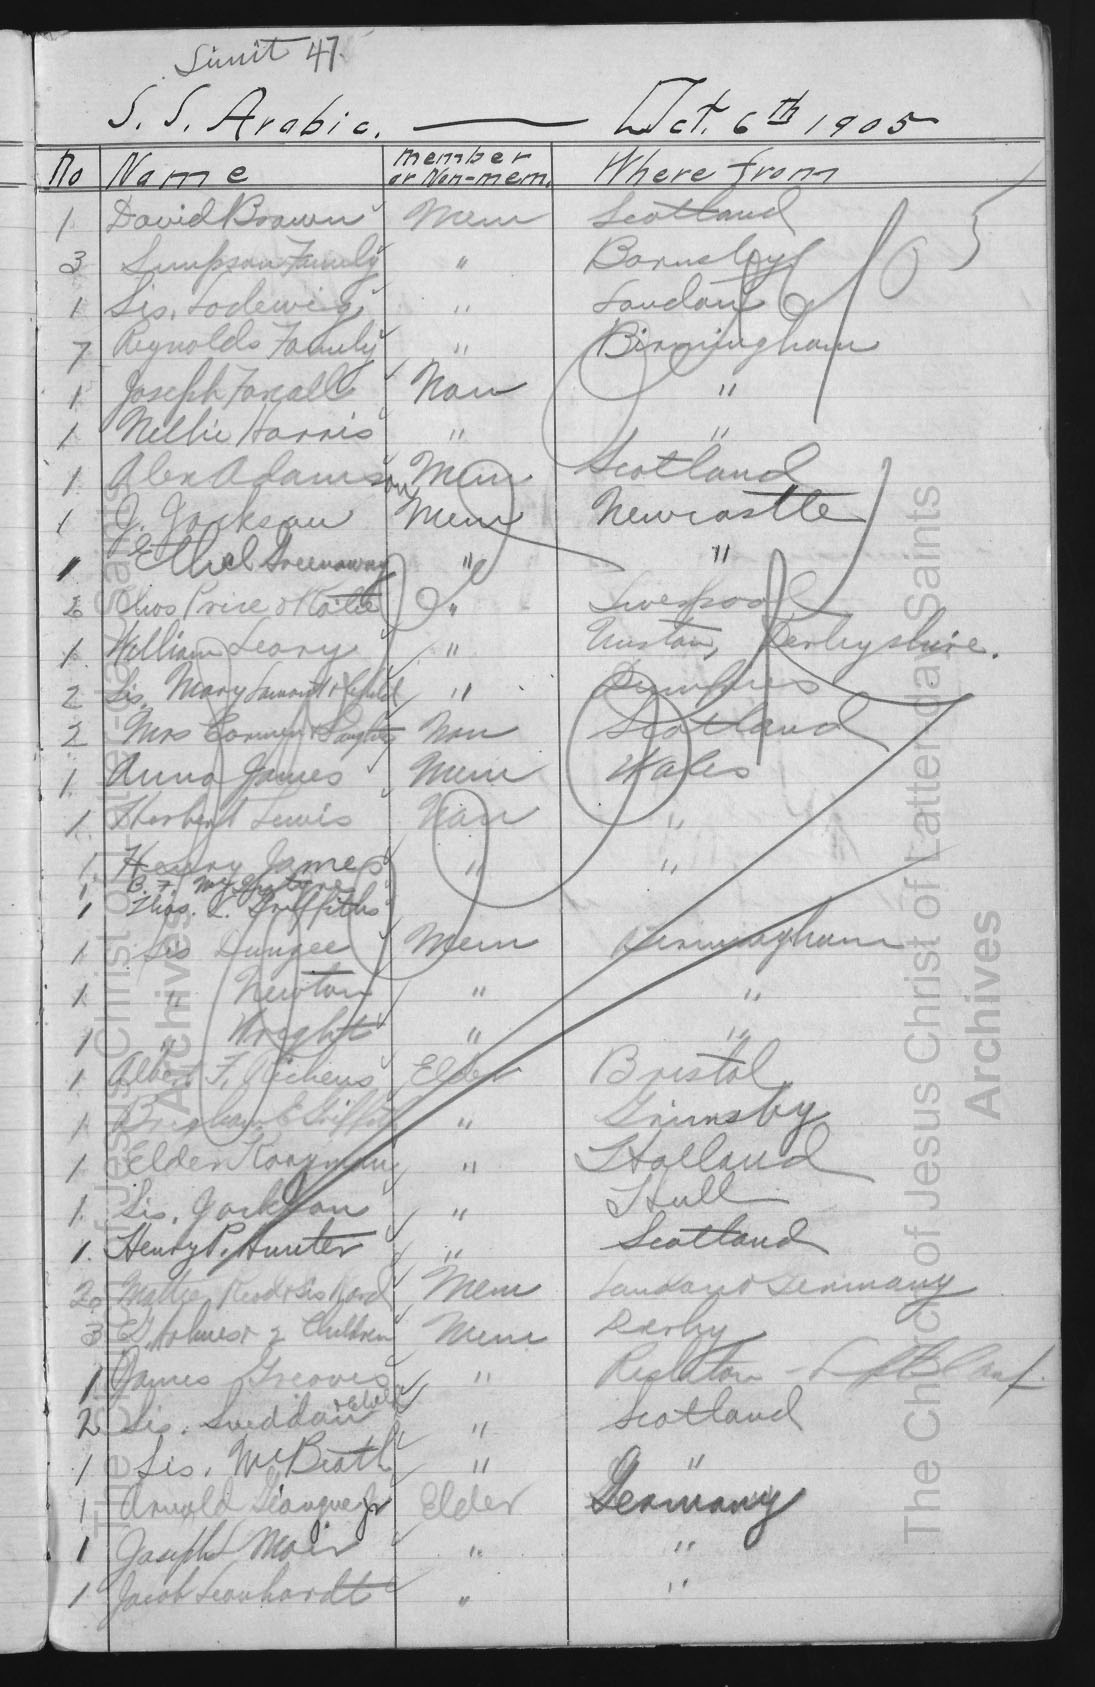 Limit 47.
S. S. Arabic. — Oct. 6th 1905
No Name member or Non-mem. Where from
1 David Brown Mem Scotland
3 Simpson Family " Barnsley
1 Sis. Lodewig " London
7 Reynolds Family " Birmingham
1 Joseph Non "
1 Nellie Harris " "
1 Alex Adamson Mem Scotland
1 J. Jackson Mem Newcastle
1 Ethel Greenaway " "
2 Thos Price & " Liverpool
1 William Leary " Derbyshire.
2 Sis. Mary Lamont & Child " Dumfries
2 Mrs & Daughter Non Scotland
1 Anna James Mem Wales
1 Herbert Lewis Non "
1 Henry James " "
1 B. F.
1 Thos. L. Griffiths
1 Sis Mem Birmingham
1 " Newton " "
1 " Wright " "
1 Albert F. Richens Elder Bristol
1 Brigham E Griffiths " Grimsby
1 Elder Kooyman " Holland
1. Sis. Jackson " Hull
1. Henry P. Hunter " Scotland
2 Reod & Sis Mem London & Germany
3 E. Holmes & 2 Children Mem Derby
1 James Greaves "
2 Sis. Sneddon & Child " Scotland
1 Sis. McBeath " "
1 Arnold Giauque Jr Elder Germany
1 Joseph Moir " "
1 Jacob Leonhardt " "
The Church of Jesus Christ of Latter-day Saints
Archives
The Church of Jesus Christ of Latter-day Saints
Archives